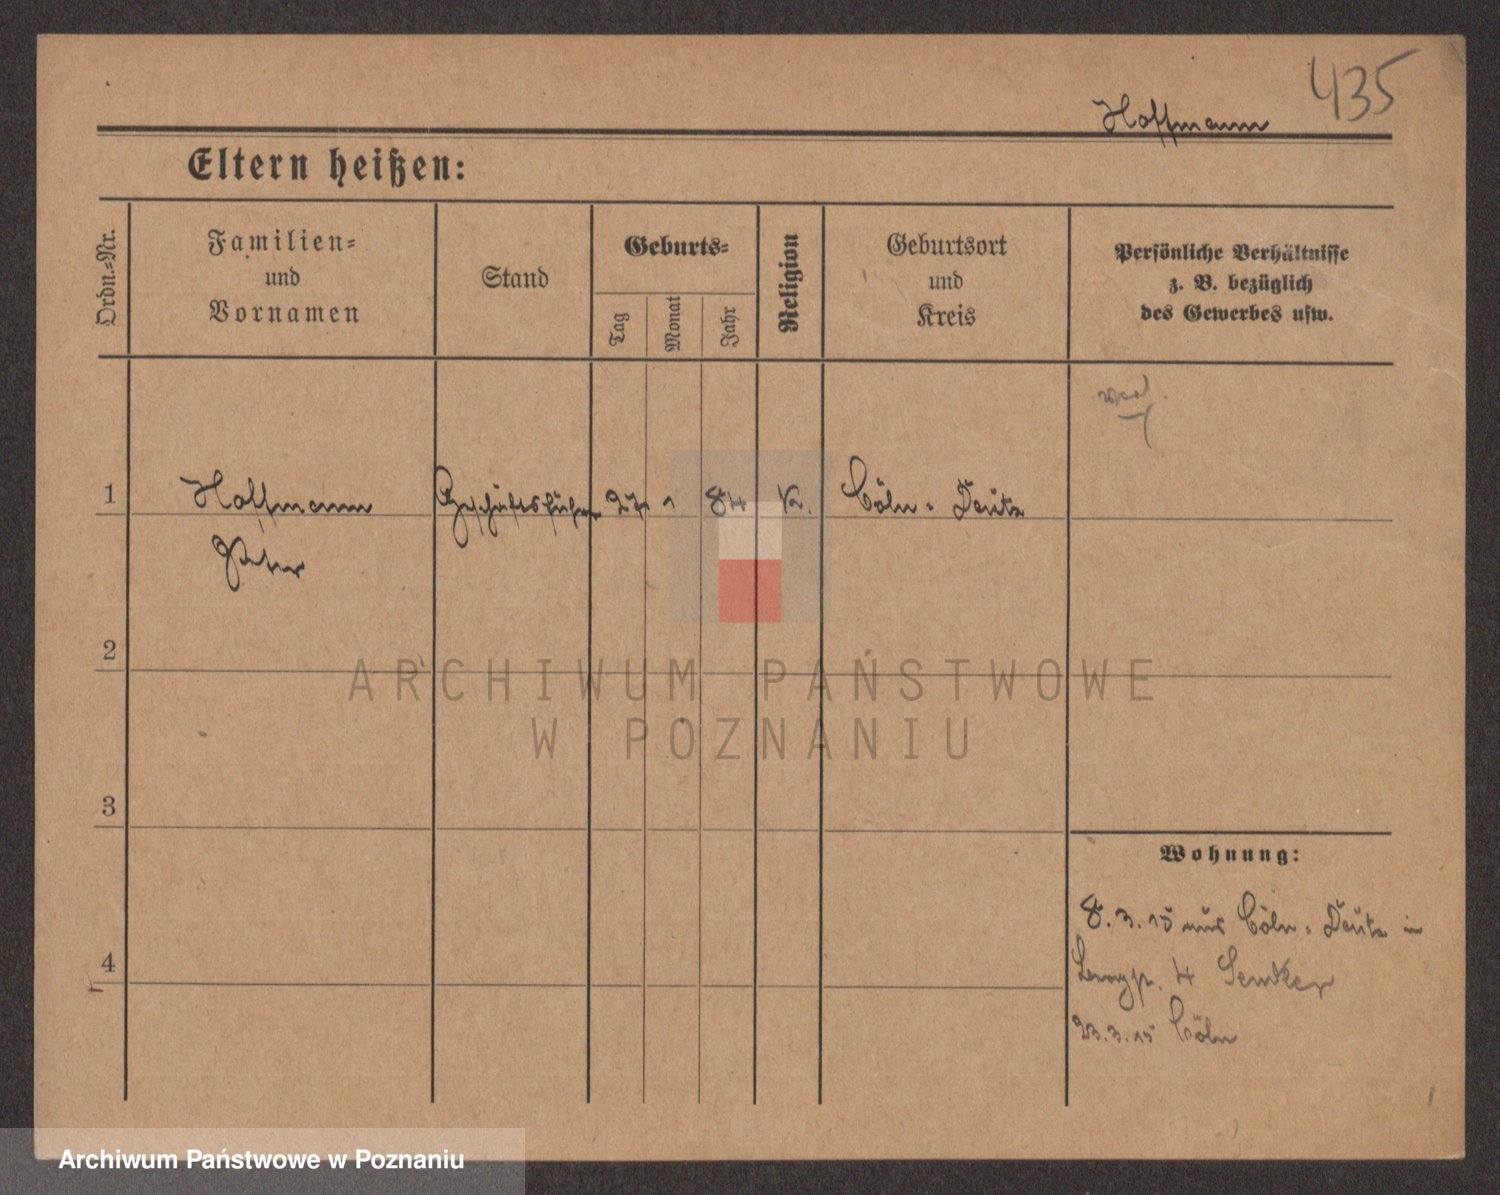 435
Hoffmann
Eltern heißen:
Ordn.=Nr.
Familien=
und
Vornamen
Stand
Geburts=
Tag
Monat
Jahr
Religion
Geburtsort
und
Kreis
Persönliche Verhältnisse
z. B. bezüglich
des Gewerbes usw.
1
Hoffmann
Geschäftsführer
27
1
84
K.
Cöln = Deutz
Peter
2
ARCHIWUM PAŃSTWOWE
W POZNANIU
3
Wohnung:
8.3.15 aus Cöln = Deutz in
4
4
23.3.15 Cöln
Archiwum Państwowe w Poznaniu